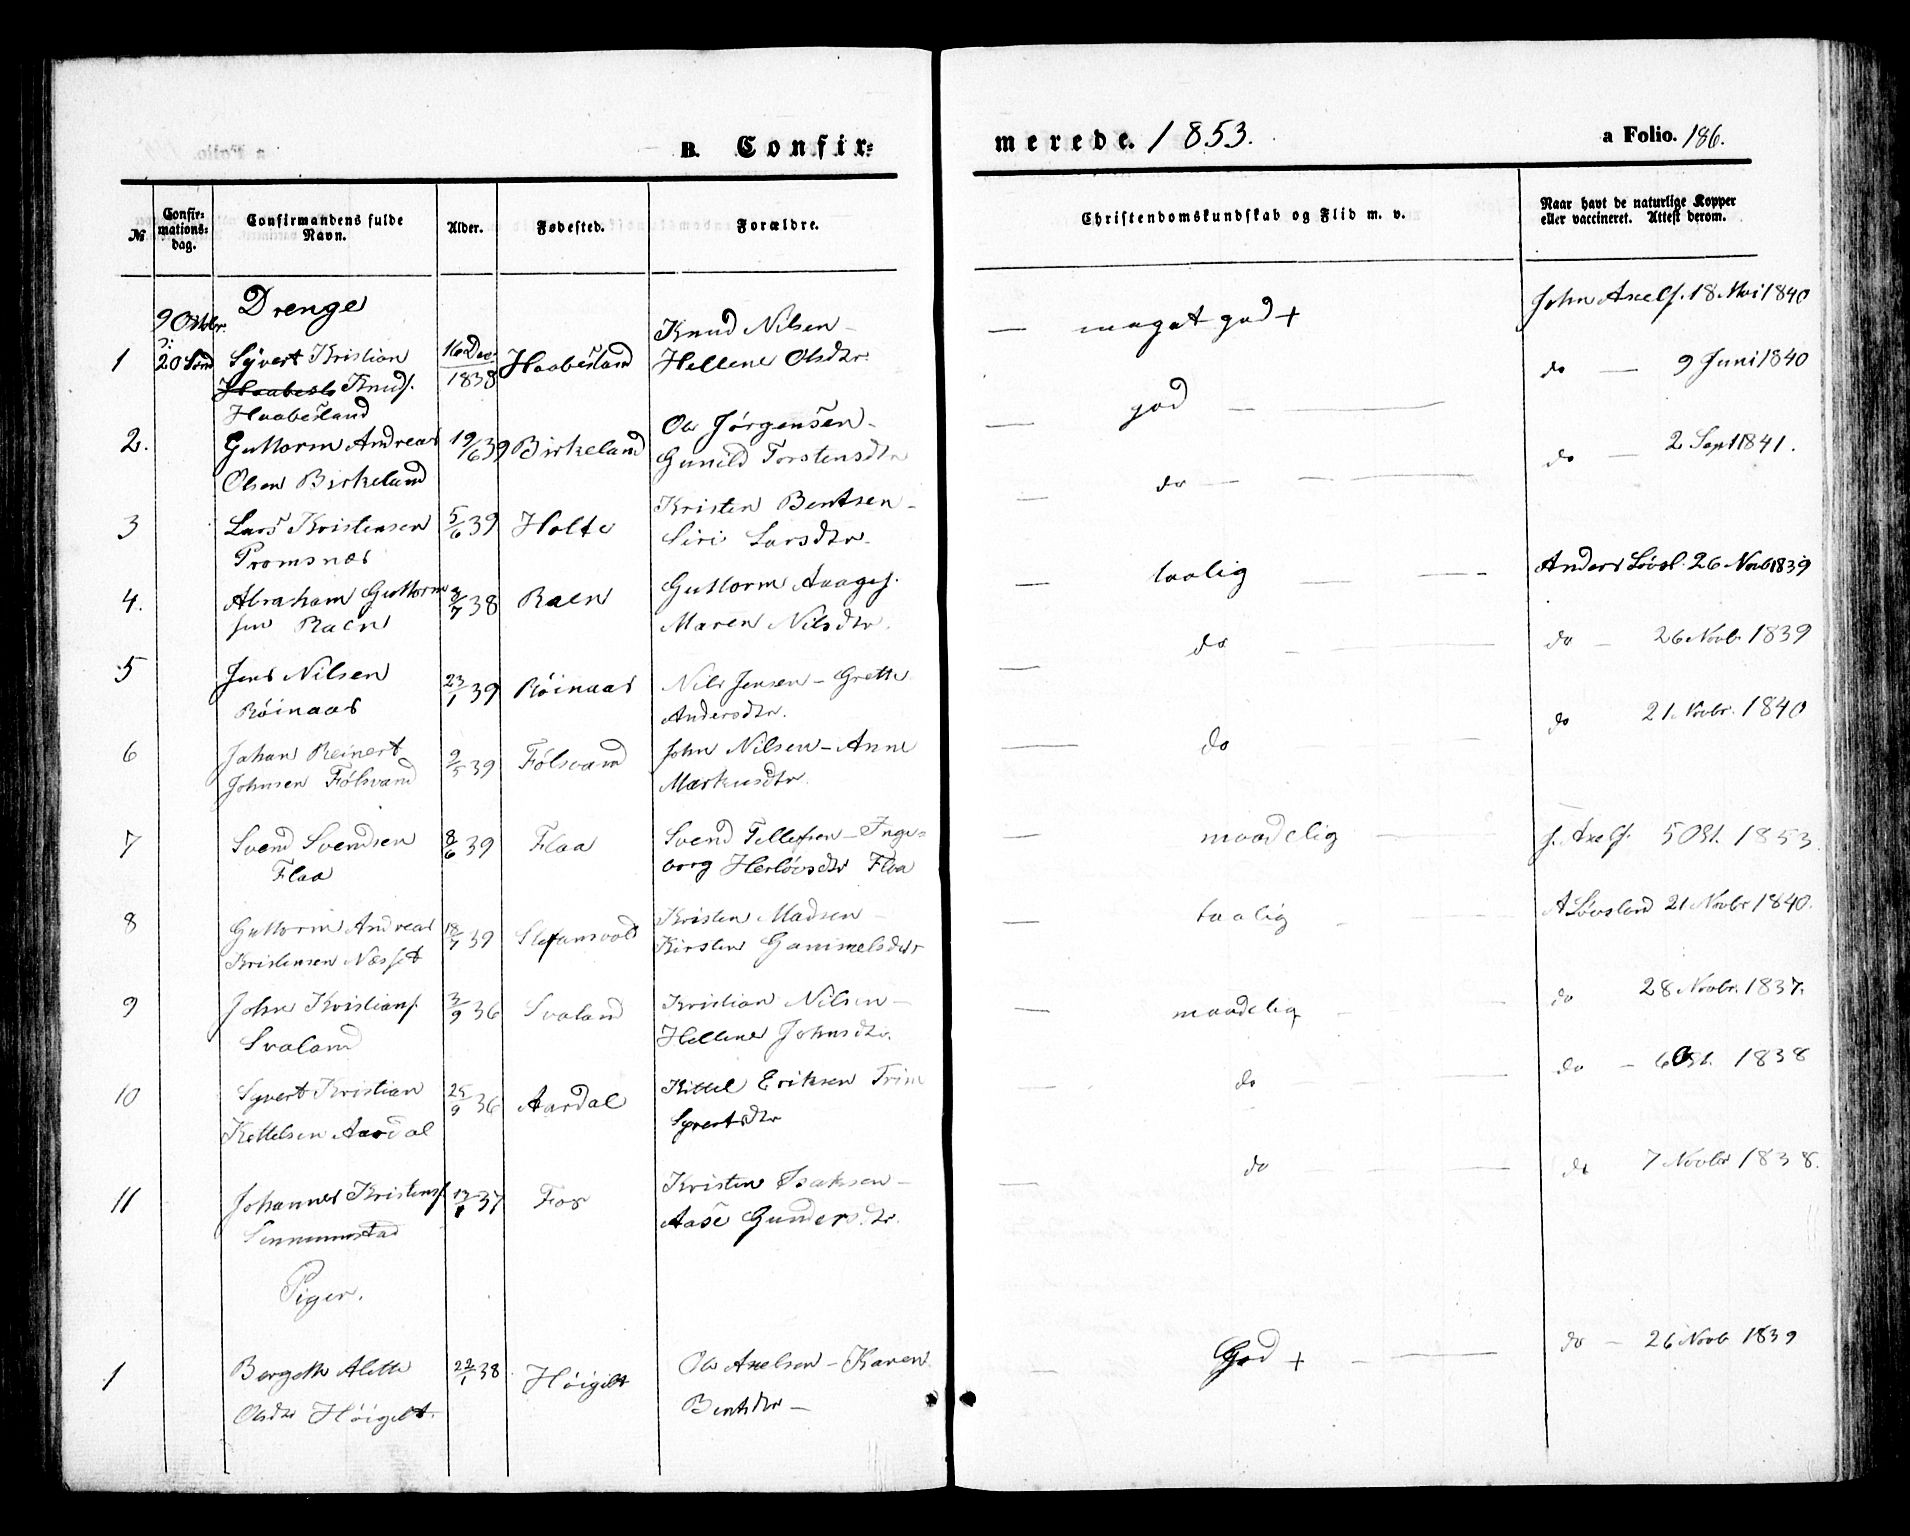 B. Confir=
merede. 1853.
a Folio. 186.
№
Confir=
mations=
dag.
Confirmandens fulde
Navn.
Alder.
Fødested.
Forældre.
Christendomskundskab og Flid m. v.
Naar havt de naturlige Kopper
eller vaccineret. Attest derom.
Drenge
9 Octbr.
1 20 Sønd Syvert Kristian 16 Dec. 1838 Haabesland Knud Nilsen –
Knuds.
Haabesland
Hellene Olsdtr
— meget god +
John Axels. 18 Mai 1840
2. Guttorm Andreas 19/6 39 Birkeland Ole Jørgensen –
Olsen Birkeland
Gunild Torstensdtr
— god —
do — 9 Juni 1840
3 Lars Kristensen 5/6 39 Holte Kristen Bentsen –
Promsnes
Siri Larsdtr.
— do —
do — 2 Sept 1841.
4. Abraham Guttorm 38 Raen Guttorm Aanes.
sen Raen
Maren Nilsdtr.
— taalig —
Anders Løvsl. 26 Novb 1839
5 Jens Nilsen 23/1 39 Røinaas Nils Jensen – Grette
Røinaas
Andersdtr.
— do —
do — 26 Novb 1839
6 Johan Reinert 9/5 39 Følsvand John Nilsen – Anne
Johnsen Følsvand
Markusdtr.
— do —
do 21. Novbr. 1840
7 Svend Svendsen 8/6 39 Flaa Svend Tellefsen – Inge=
Flaa
borg Herløvsdtr Flaa
— maadelig —
J. Axels. 5 Oct. 1853
8 Guttorm Andreas 18/7 39 Stefansvold Kristen Madsen –
Kristensen Næsset
Kirsten Gammelsdtr
— taalig —
A Løvsland 21 Novbr 1840.
9 John Kristians. 3/9 36 Svaland Kristian Nilsen –
Svaland
Hellene Johnsdtr.
— maadelig —
do 28 Novbr. 1837.
10 Syvert Kristian 25/9 36 Aardal Kittel Eriksen Trine
Kettelsen Aardal
Syvertsdtr
— do —
do — 6 Oct. 1838
11 Johannes Kristens. 37 Fos Kristen Isaksen –
Aase Gundersdtr.
— do —
do 7 Novbr 1838.
Piger.
1 Bergette Alette 22/1 38 Høigilt Ole Axelsen – Karen
Olsdtr Høigilt.
Bentsdtr –
— God + —
do — 26 Novb 1839